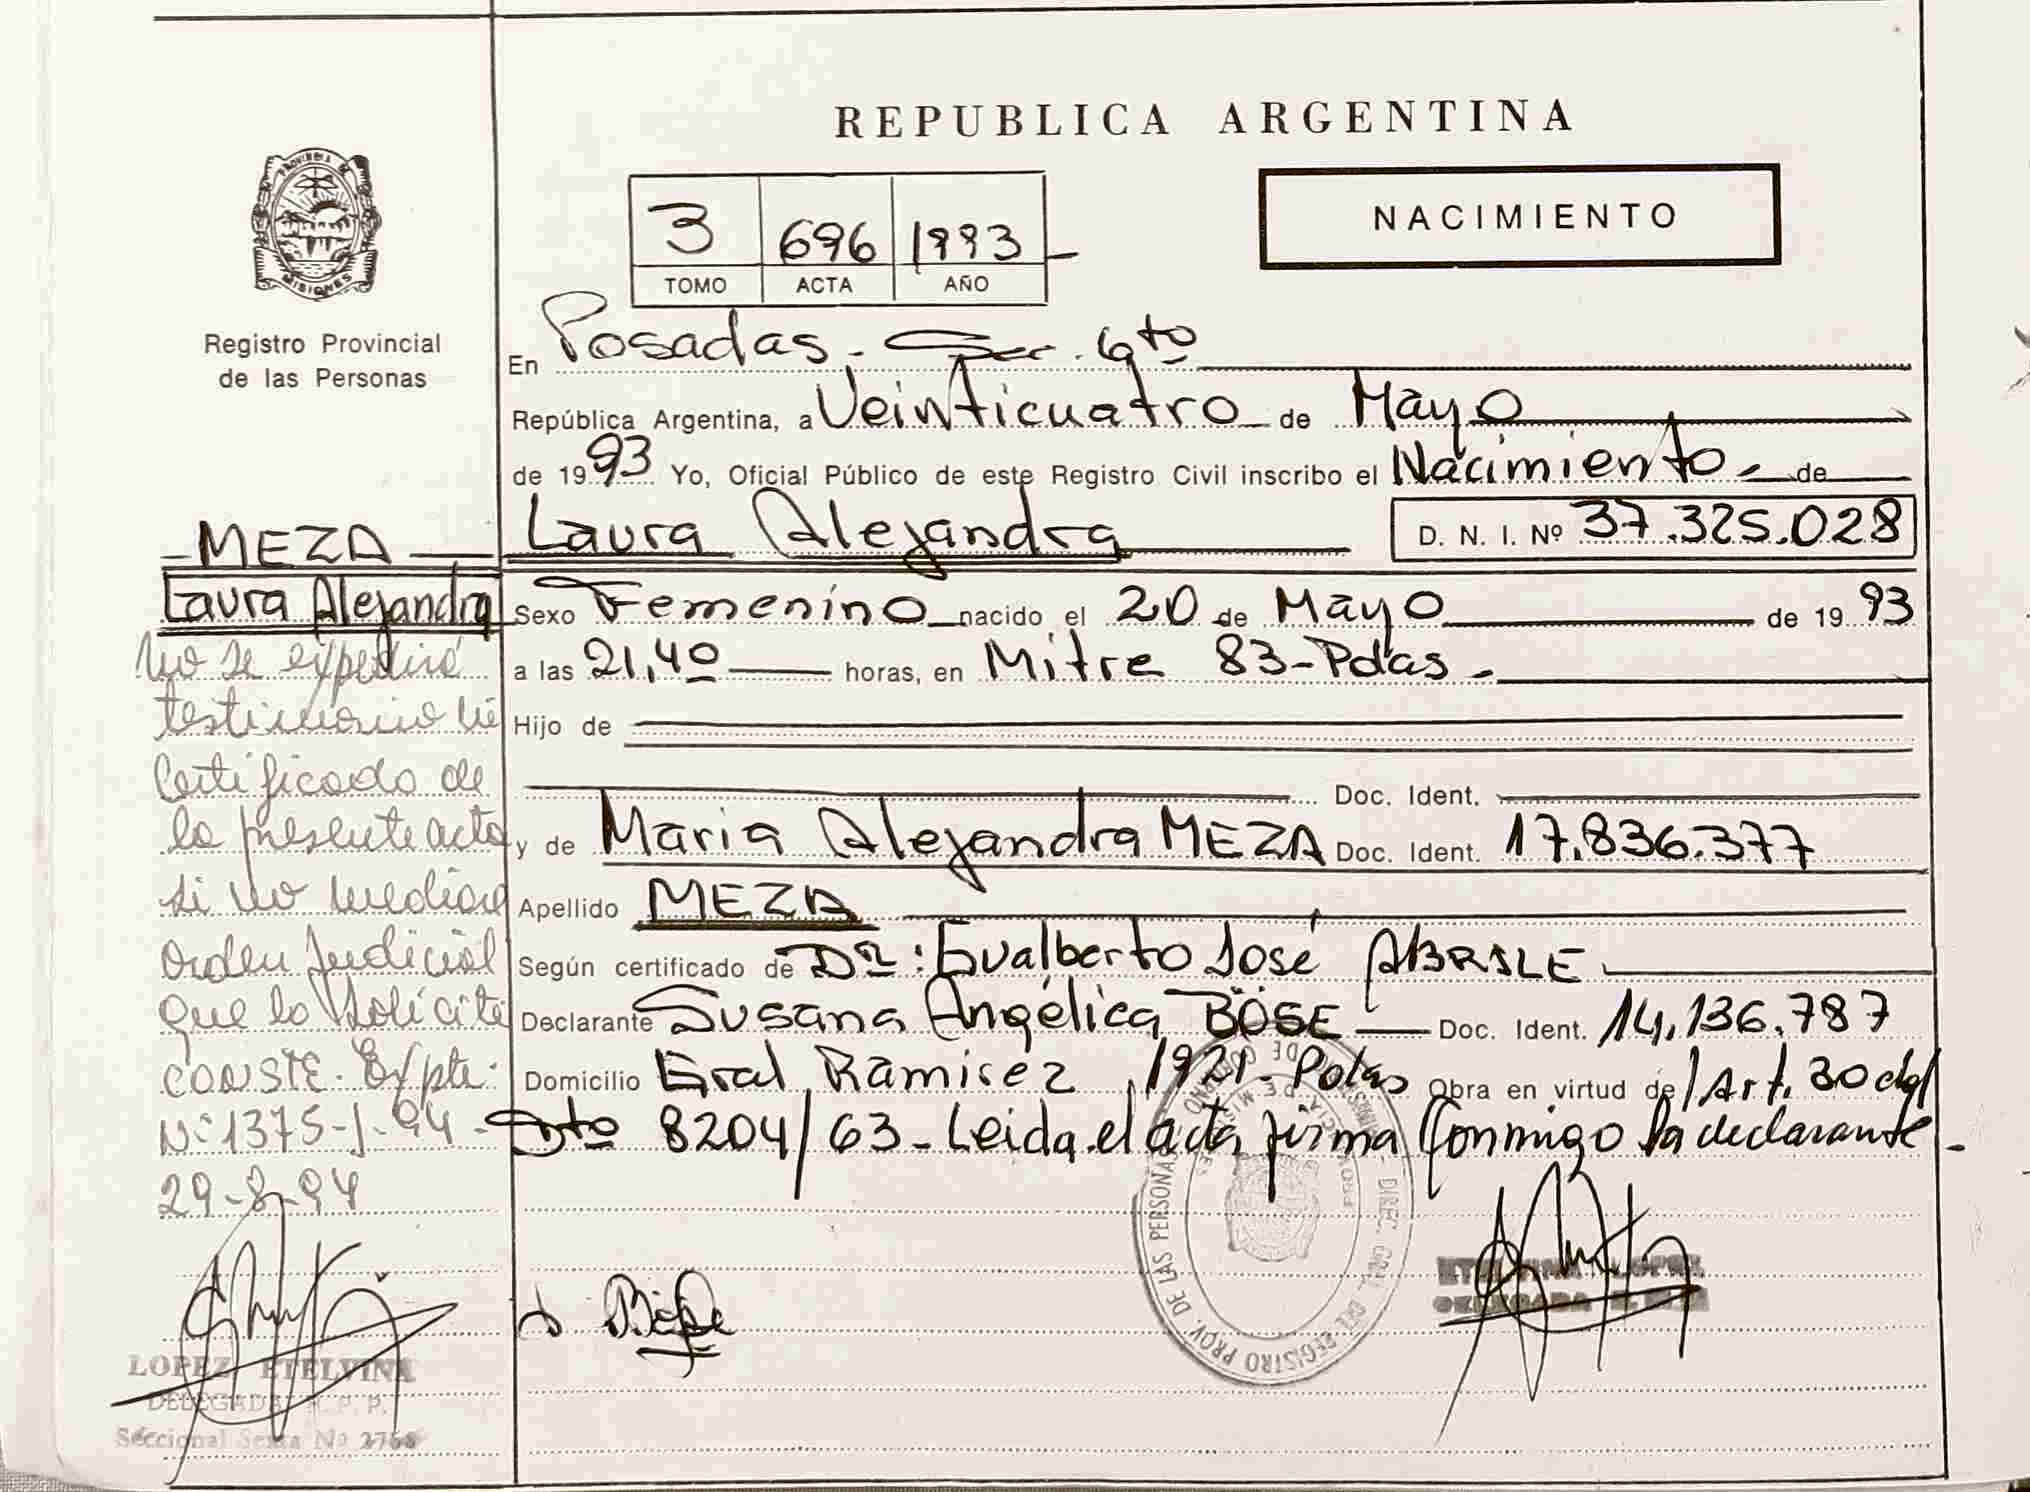 REPUBLICA ARGENTINA
PROVINCIA DE
MISIONES
Registro Provincial
de las Personas
3 696 1993
TOMO ACTA AÑO
NACIMIENTO
En Posadas. Sec. 6to
República Argentina, a Veinticuatro de Mayo
de 1993 Yo, Oficial Público de este Registro Civil inscribo el Nacimiento de
Laura Alejandra D. N. I. Nº 37.325.028
Sexo Femenino nacido el 20 de Mayo de 1993
a las 21,40 horas, en Mitre 83-Pdas.
Hijo de
Doc. Ident.
y de Maria Alejandra MEZA Doc. Ident. 17.836.377
Apellido MEZA
Según certificado de Dr: Gualberto José ABRILE
Declarante Susana Angélica BÖSE Doc. Ident. 14.136.787
Domicilio Gral Ramirez 1921-Pdas Obra en virtud del Art. 30 del
Dto 8204/63-Leida el acta firma conmigo la declarante.
MEZA
Laura Alejandra
No se expedirá
testimonio ni
Certificado de
la presente acta
si no mediare
orden Judicial
que lo solicite
CONSTE. Expte.
Nº 1375-J-94-
29-8-94
LOPEZ ETELVINA
DELEGADA R. P. P.
Seccional Sexta Nº 2768
ETELVINA LOPEZ
DELEGADA R. P. P.
DIREC. GRAL. DEL REGISTRO PROV. DE LAS PERSONAS